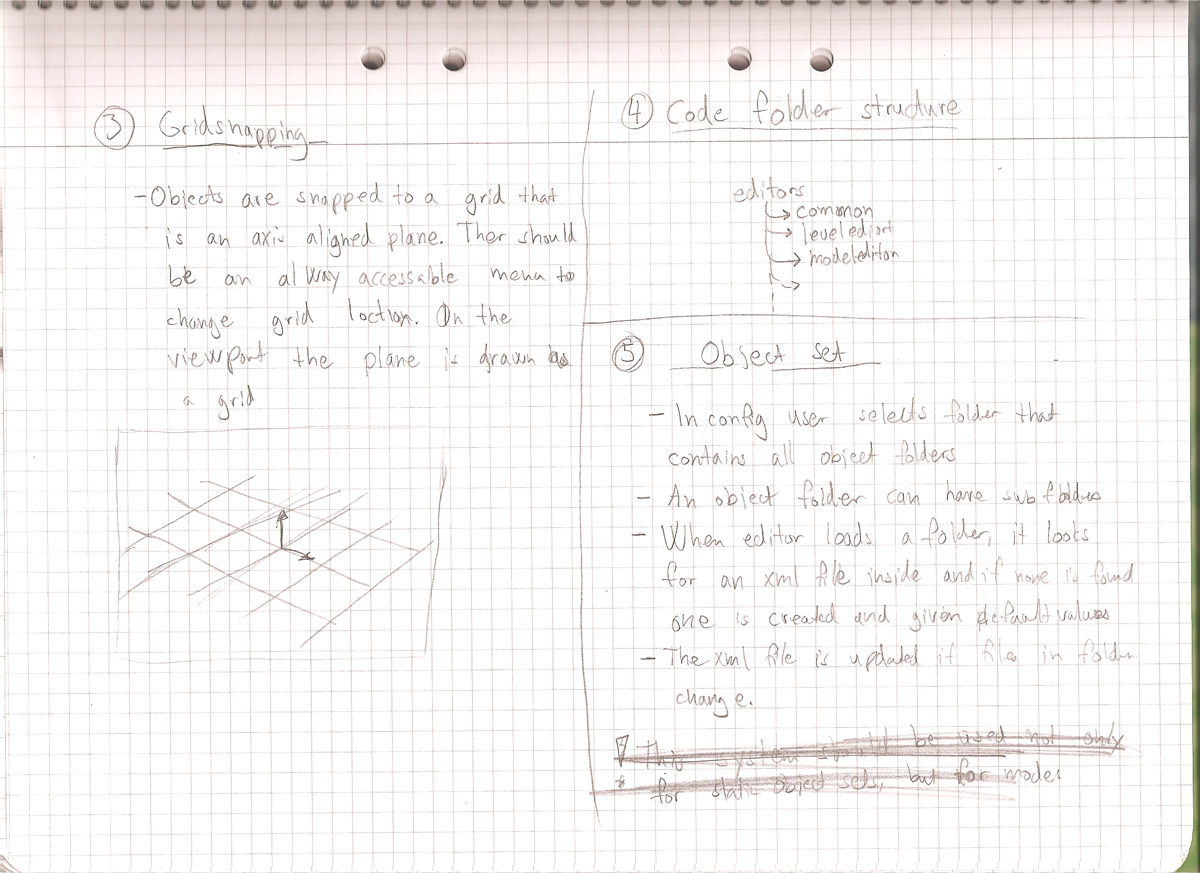 3 Gridsnapping
- Objects are snapped to a grid that
is an axis aligned plane. Ther should
be an alway accessable menu to
change grid loction. On the
viewport the plane is drawn as
a grid
4 Code folder structure
editors
common
levelediort
modeleditor
5 Object set
- In config user selects folder that
contains all object folders
- An object folder can have subfolders
- When editor loads a folder, it looks
for an xml file inside and if none is found
one is created and given default values
- The xml file is updated if files in folder
change.
! This system should be used not only
for static object sets, but for model